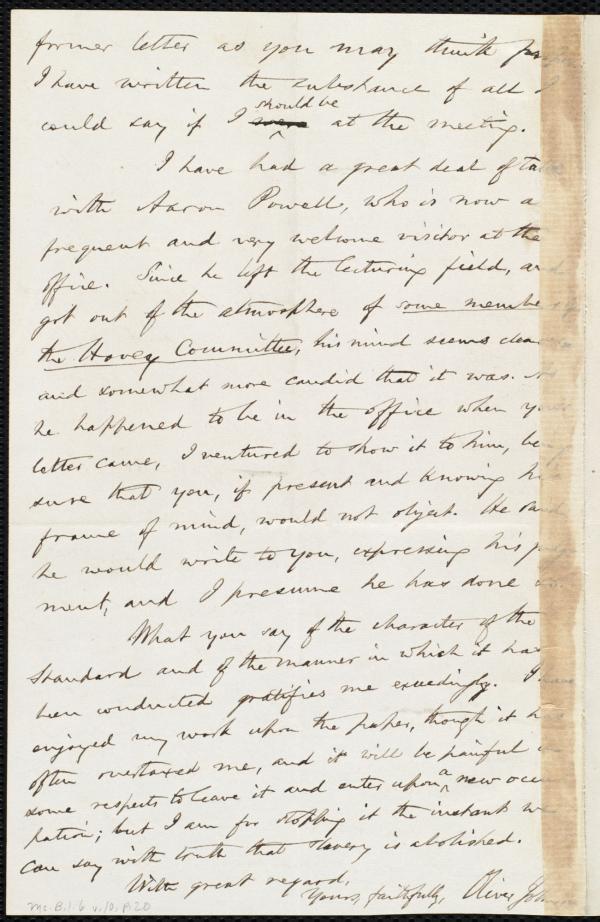 former letter as you may think
I have written the substance of all I
could say if I should be at the meeting.
I have had a great deal of talk
with Aaron Powell, who is now a
frequent and very welcome visitor at the
office. Since he left the lecturing field, and
got out of the atmosphere of some members of
the Hovey Committee, his mind seems clearer
and somewhat more candid that it was. As
he happened to be in the office when your
letter came, I ventured to show it to him, being
sure that you, if present and knowing his
frame of mind, would not object. He said
he would write to you, expressing his judg-
ment, and I presume he has done so.
What you say of the character of the
Standard and of the manner in which it has
been conducted gratifies me exceedingly. I have
enjoyed my work upon the paper, though it has
often overtaxed me, and it will be painful in
some respects to leave it and enter upon a new occu-
pation; but I am for stopping it the instant we
can say with truth that slavery is abolished.
With great regard,
Yours, faithfully, Oliver Johnson
Ms.B.1.6 v.10, p.20